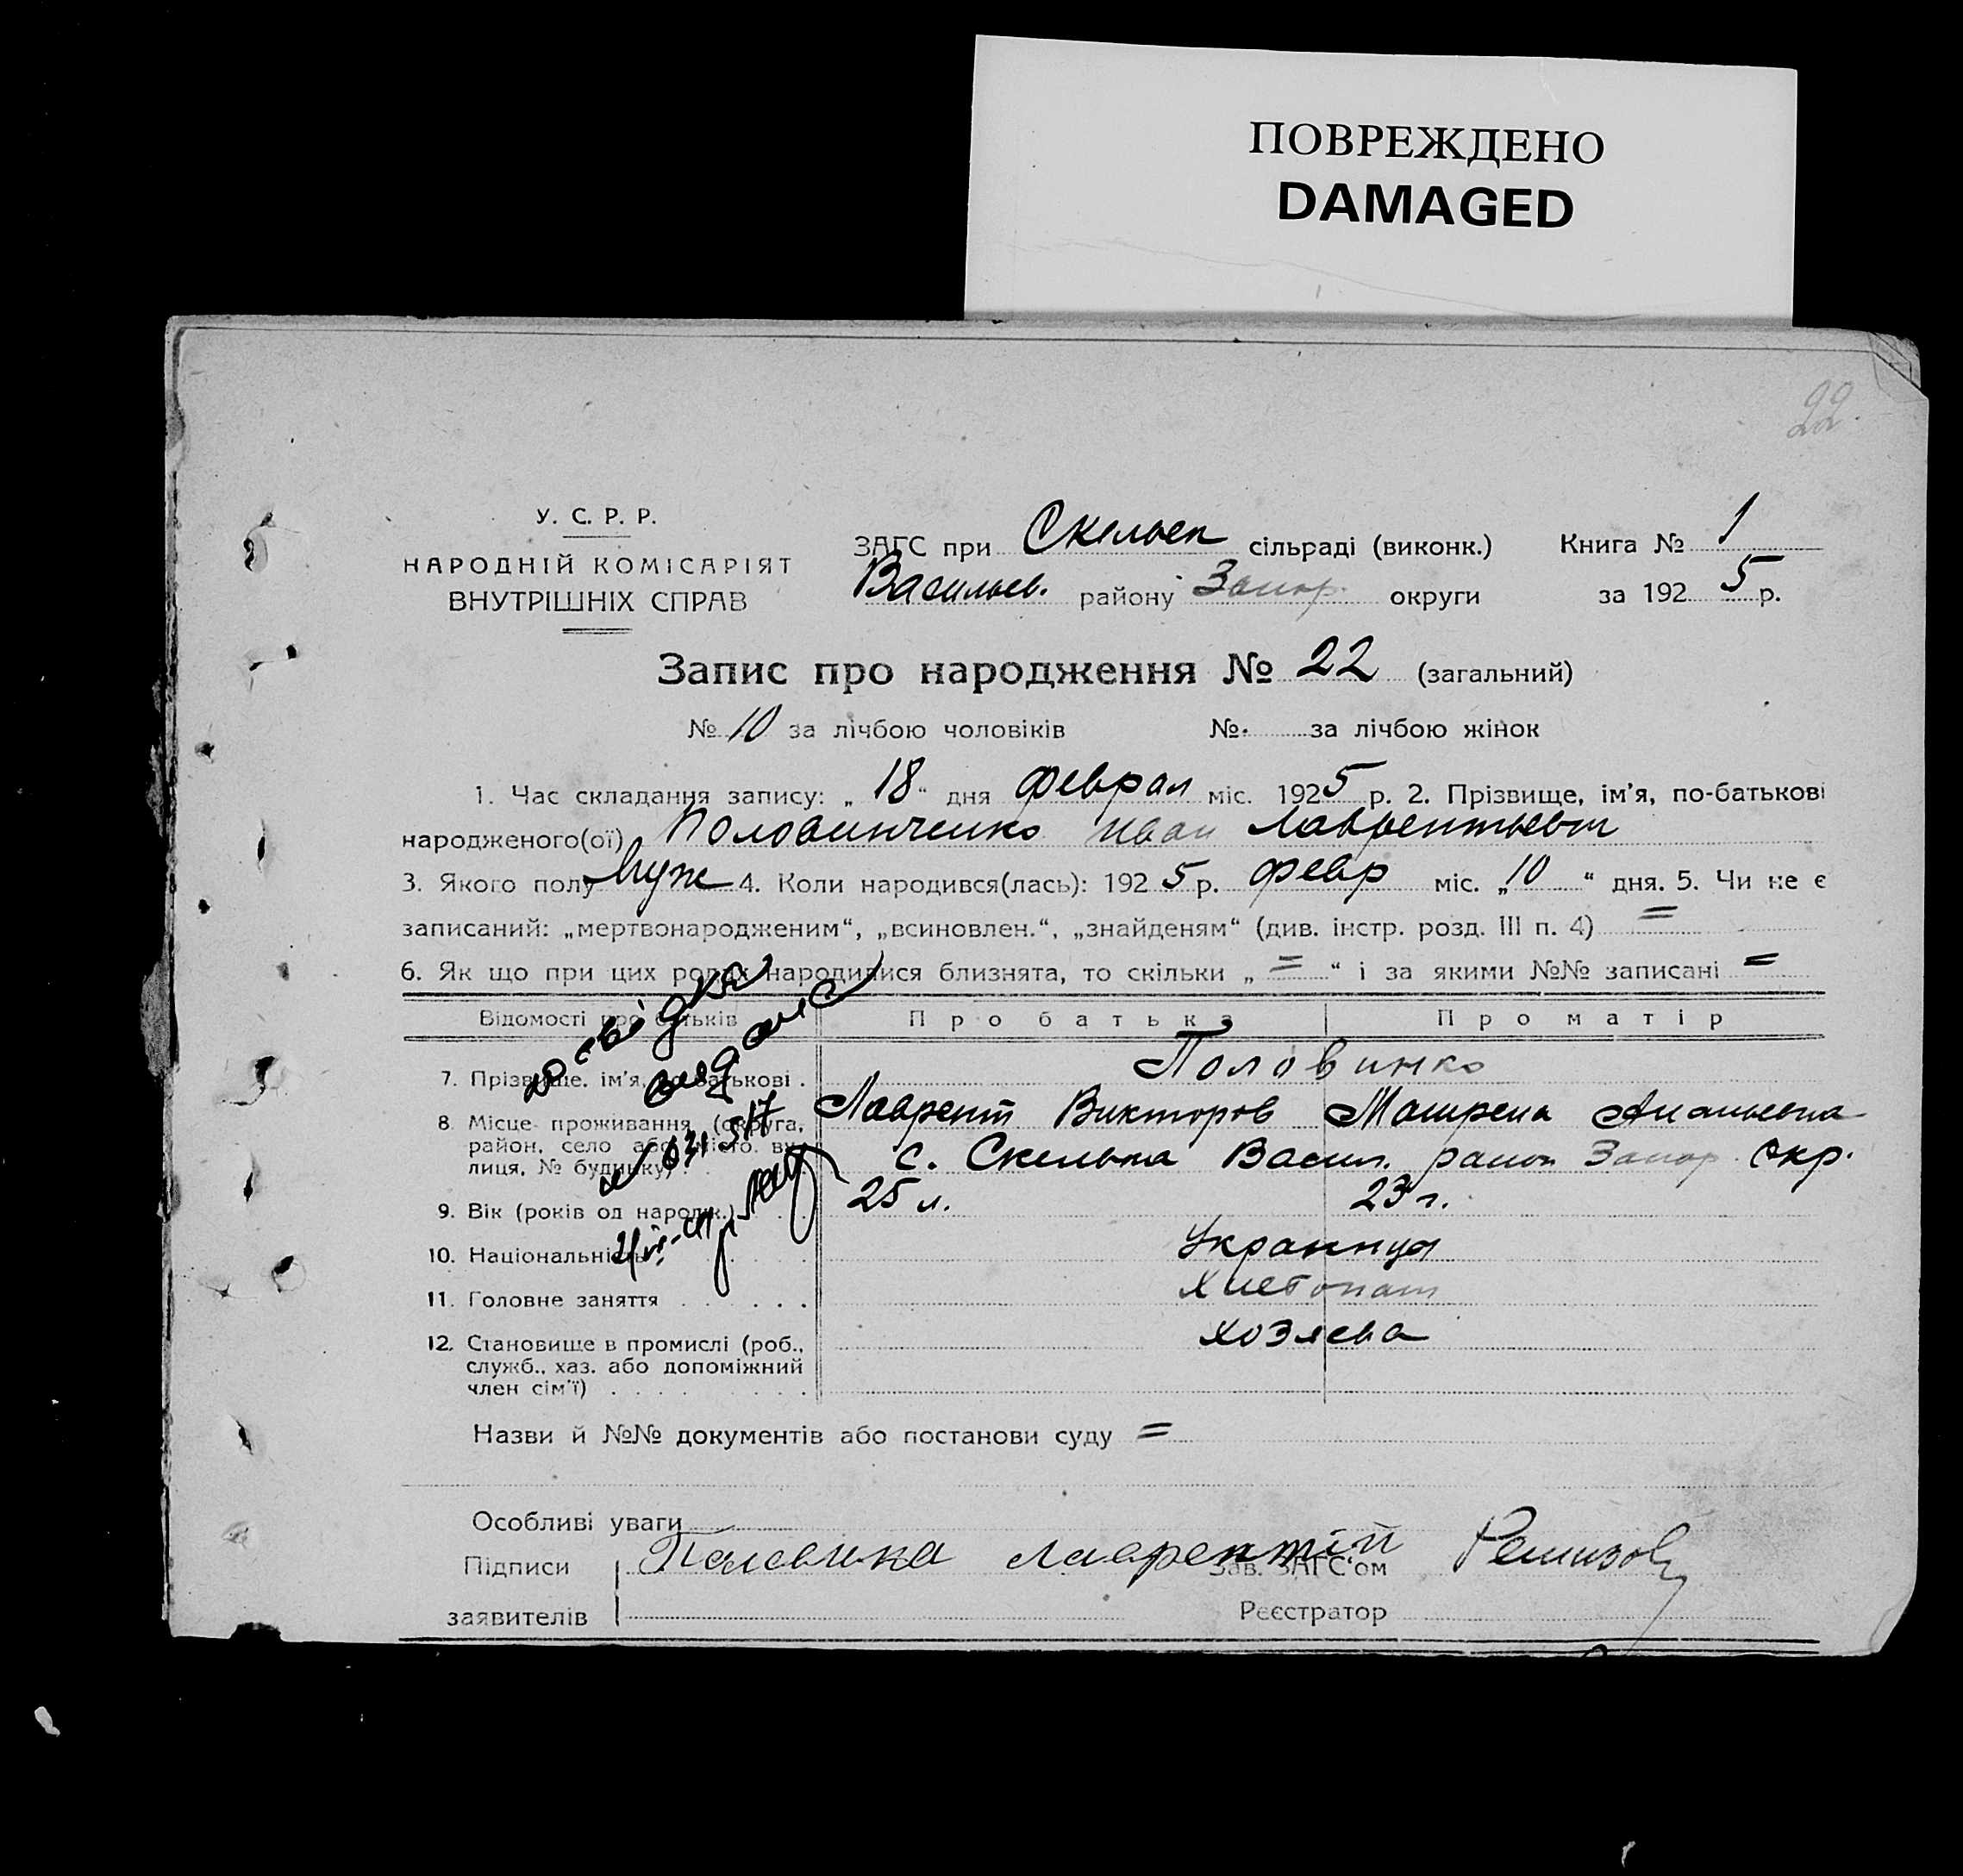 ПОВРЕЖДЕНО
DAMAGED
22.
У. С. Р. Р.
НАРОДНІЙ КОМІСАРІЯТ
ВНУТРІШНІХ СПРАВ
ЗАГС при Скельєк сільраді (виконк.) Книга № 1
Васильев. району Запор. округи за 1925 р.
Запис про народження № 22 (загальний)
№ 10 за лічбою чоловіків №. за лічбою жінок
1. Час складання запису: „18“ дня феврал міс. 1925 р. 2. Прізвище, ім'я, по-батькові
народженого(ої) Половинченко Иван Лаврентьевич
3. Якого полу Муж 4. Коли народився(лась): 1925 р. февр міс. „10“ дня. 5. Чи не є
записаний: „мертвонародженим“, „всиновлен.“, „знайденям“ (див. інстр. розд. III п. 4) =
6. Як що при цих родах народилися близнята, то скільки „=“ і за якими №№ записані =
Відомості про батьків Про батька Про матір
7. Прізвище. ім'я, по батькові . Половинко
Лаврент Викторов Мотрена Ананьевна
8. Місце проживання (округа, район, село або місто. вулиця, № будинку) с. Скелька Васил. район Запор. Окр.
9. Вік (років од народж.) 25 л. 23 г.
10. Національність Украинца
11. Головне заняття Хлебопаш
12. Становище в промислі (роб., служб., хаз. або допоміжний член сім'ї) хозяева
довідка
видана
Назви й №№ документів або постанови суду =
Особливі уваги
Підписи Половинка Лаврентій Зав. ЗАГС'ом Ремизов
заявителів Реєстратор